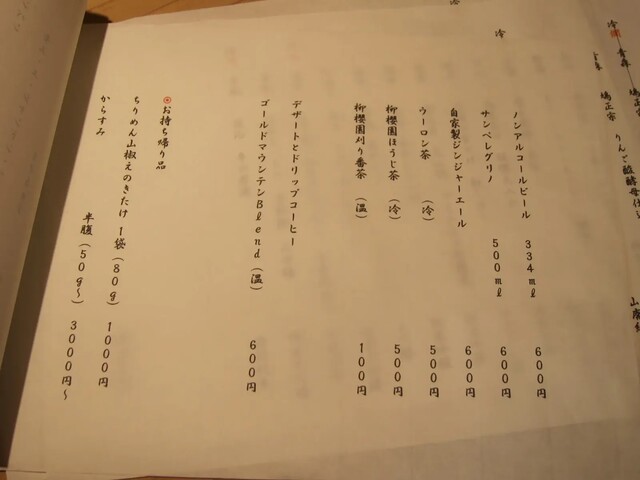 ノンアルコールビール 334ml 600円
サンペレグリノ 500ml 600円
自家製ジンジャーエール 600円
ウーロン茶 (冷) 500円
柳櫻園ほうじ茶 (冷) 500円
柳櫻園刈り番茶 (温) 100円
デザートとドリップコーヒー
ゴールドマウンテンBlend (温) 600円
お持ち帰り品
ちりめん山椒えのきたけ 1袋(80g) 1000円
からすみ 半腹(50g〜) 3000円〜